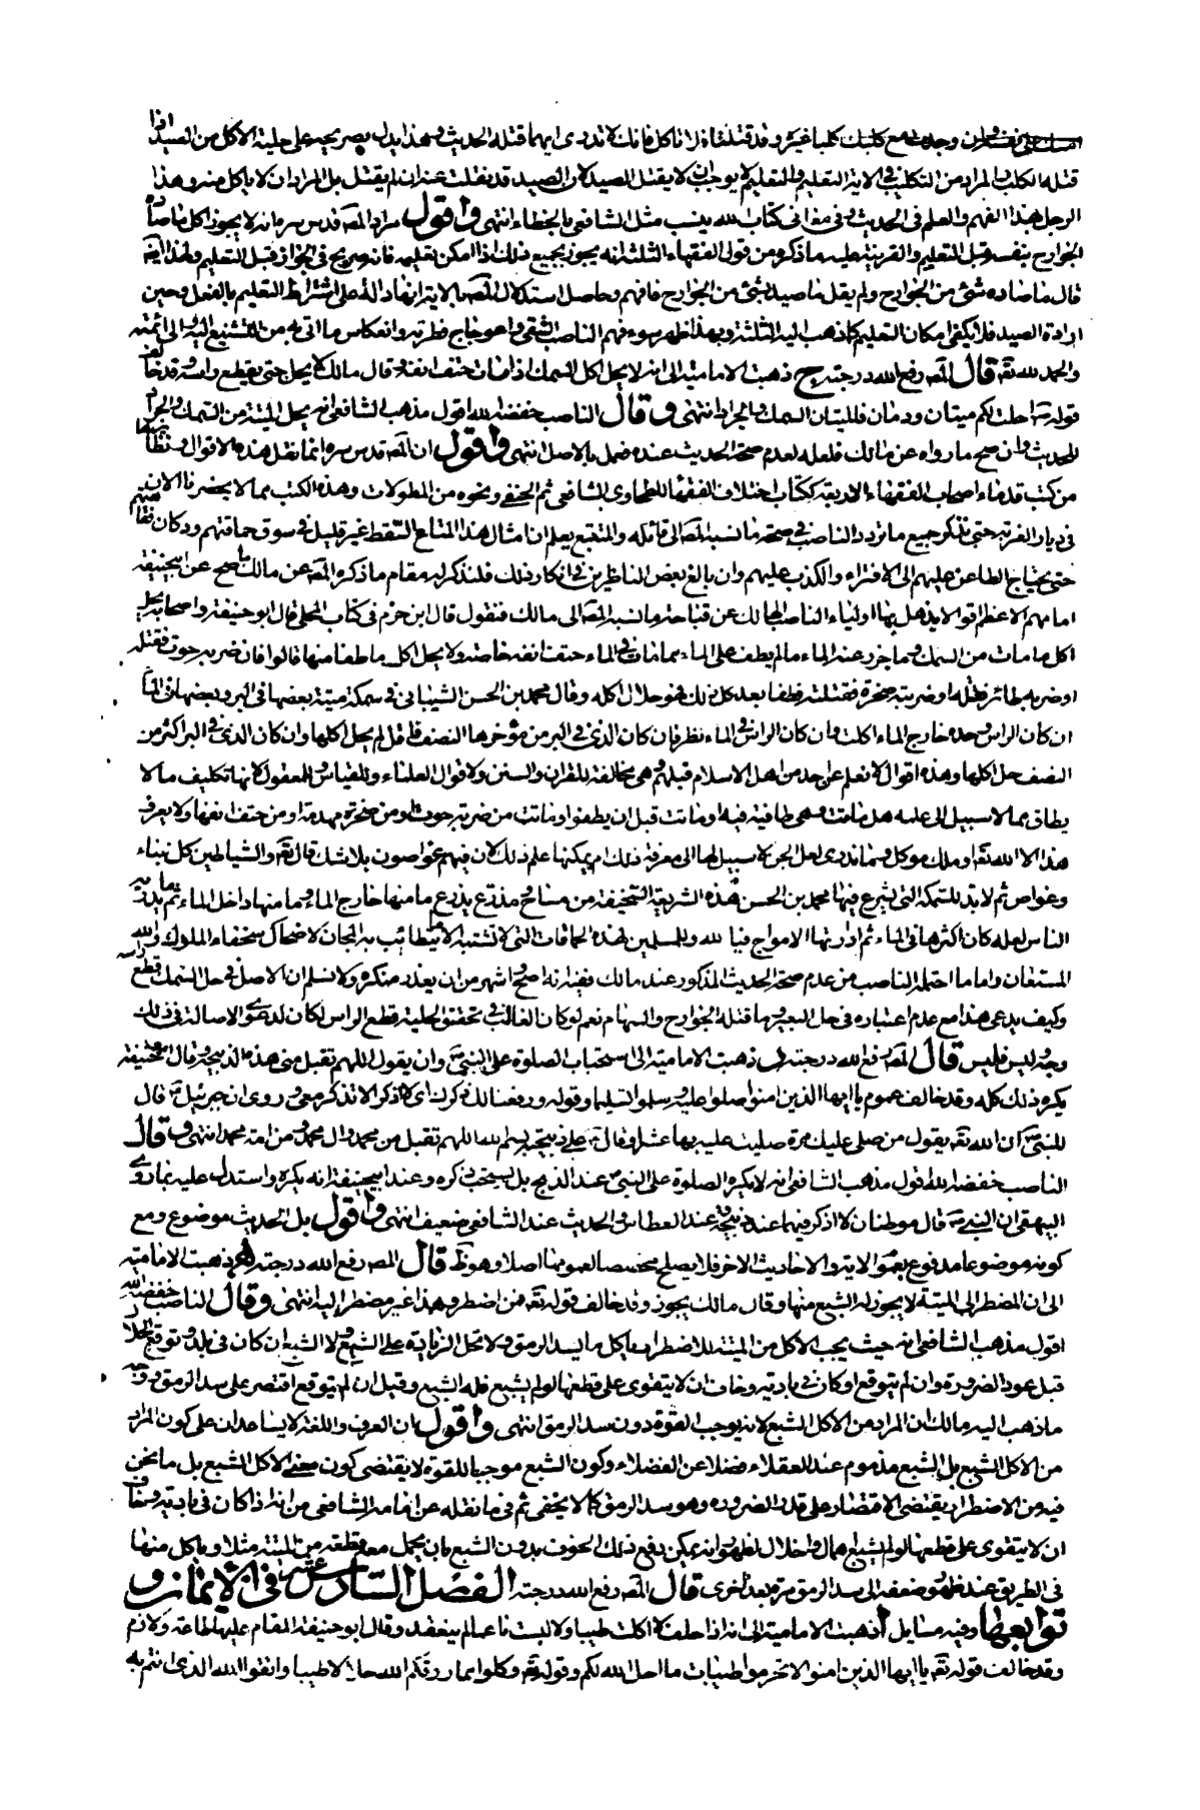 وجدت مع كلبك كلبا غيره وقد قتلته فلا تاكل فانك لا تدرى ايهما قتله الحديث وهذا يدل بصريحه على حلية الاكل من الصيد اذا
قتله الكلب والمراد من التكليب فى الاية التعليم والتعليم لا يوجب ان لا يقتل الصيد لان الصيد قد يفلت عنه ان لم يقتل بل المراد ان لا ياكل منه وهذا
الرجل بهذا الفهم والعلم فى الحديث وفى معانى كتاب الله ينسب مثل الشافعى بالخطاء انتهى واقول مراد المصـ قدس سره انه لا يجوز اكل ما صاده
الجوارح بنفسه وقبل التعليم والقرينة عليه ما ذكره من قول الفقهاء الثلثة انه يجوز بجميع ذلك اذا امكن تعليمه فانه صريح فى الجواز قبل التعليم ولهذا
قال ما صاده شئ من الجوارح ولم يقل ما صيد بشئ من الجوارح فافهم وحاصل استدلال المصـ بالاية انها دالة على اشتراط التعليم بالفعل وحين
ارادة الصيد فلا يكفى امكان التعليم كما ذهب اليه الثلثة وبهذا ظهر سوء فهم الناصب الشقى واعوجاج فطرته وانعكاس ما اتى به من التشنيع اليه والى ائمته
والحمد لله تعـ قال المصـ رفع الله درجته ج ذهبت الامامية الى انه لا يحل اكل السمك اذا مات حتف انفه وقال مالك لا يحل حتى يقطع راسه وقد خالف
قوله احلت لكم ميتتان ودمان فالميتتان السمك والجراد انتهى وقال الناصب خفضه الله اقول مذهب الشافعى انه يحل الميتة من السمك والجراد
للحديث وان صح ما رواه عن مالك فلعله لعدم صحة الحديث عنده فعمل بالاصل انتهى واقول ان المصـ قدس سره انما نقل هذه الاقوال
من كتب قدماء اصحاب الفقهاء الاربعة ككتاب اختلاف الفقهاء للطحاوى الشافعى ثم الحنفى ونحوه من المطولات وهذه الكتب مما لا يحضرنا الان
فى ديار الغربة حتى نذكر جميع ما تردد الناصب فى صحة ما نسبه المصـ الى قائله والمتتبع يعلم ان امثال هذا المتاع السقط غير قليل فى سوق حماقتهم ودكان
حتى يحتاج الطاعن عليهم الى الافتراء والكذب عليهم وان بالغ بعض الناظرين فى انكار ذلك فلنذكر له مقام ما ذكره المصـ عن مالك ما صح عن ابيحنيفة
امامهم الاعظم اقوالا يذهل بها اولياء الناصب الهالك عن قباحة ما نسبه المصـ الى مالك فنقول قال ابن حزم فى كتاب المحلى قال ابو حنيفة واصحابه يحل
اكل ما مات من السمك وما جزر عنه الماء ما لم يطف على الماء مما مات فى الماء حتف انفه خاصة ولا يحل اكل ما طفا منها قالوا فان ضربه حوت فقتله
او ضربه طائر فقتله او ضربته صخرة فقتلته فطفا بعد كل ذلك فهو حلال اكله وقال محمد بن الحسن الشيبانى فى سمكة ميتة بعضها فى البر وبعضها فى الماء
ان كان الراس وحده خارج الماء اكلت وان كان الراس فى الماء نظر فان كان الذى فى البر من مؤخرها النصف فاقل لم يحل اكلها وان كان الذى فى البر اكثر من
النصف حل اكلها وهذه اقوال لا نعلم عن احد من اهل الاسلام قبلهم وهى مخالفة للقران والسنن ولاقوال العلماء وللقياس وللمعقول لانها تكليف ما لا
يطاق مما لا سبيل الى علمه هل ماتت وهى طافية فيه او ماتت قبل ان يطفو او ماتت من ضربة حوت او من صخرة مهدمة او من حتف انفها ولا يعرف
هذا الا الله تعـ او ملك موكل وما ندرى لعل الجن لا سبيل لها الى معرفة ذلك ام يمكنها علم ذلك لان فيهم غواصون بلا شك قال تعـ والشياطين كل بناء
وغواص ثم لا بد للسمكة التى يشرع فيها محمد بن الحسن هذه الشريعة السخيفة من مساح مذرع يذرع ما منها خارج الماء وما منها داخل الماء ثم ما يدريه
الناس لعله كان اكثرها فى الماء ثم ادارتها الامواج فيا لله وللمسلمين لهذه الحماقات التى لا تشتبه الا بما يتطائب به المجان لاضحاك سخفاء الملوك والله
المستعان واما ما احتمله الناصب من عدم صحة الحديث المذكور عند مالك ففيه انه اصح واشهر من ان يعذر منكره ولا نسلم ان الاصل فى حل السمك قطع راسه
وكيف يدعى هذا مع عدم اعتباره فى حل البعير وما قتله الجوارح والسهام نعم لو كان الغالب فى تحقق الحلية قطع الراس لكان لدعوى الاصالة فى ذلك
وجه وليس فليس قال المصـ رفع الله درجته د ذهبت الامامية الى استحباب الصلوة على النبى وان يقول اللهم تقبل منى هذه الذبيحة وقال ابو حنيفة
يكره ذلك كله وقد خالف عموم يا ايها الذين امنوا صلوا عليه وسلموا تسليما وقوله ورفعنا لك ذكرك اى لا اذكر الا تذكر معى وروى ان جبرئيل قال
للنبى ان الله تعـ يقول من صلى عليك مرة صليت عليه بها عشرا وقال على ذبيحته بسم الله اللهم تقبل من محمد وال محمد ومن امة محمد انتهى وقال
الناصب خفضه الله اقول مذهب الشافعى انه لا يكره الصلوة على النبى عند الذبح بل يستحب ذكره وعند ابيحنيفة انه يكره واستدل عليه بما روى
البيهقى ان النبى قال موطنان لا اذكر فيهما عند الذبيحة وعند العطاس والحديث عند الشافعى ضعيف انتهى واقول بل الحديث موضوع ومع
كونه موضوعا مدفوع بعموم الاية والاحاديث الاخر فلا يصلح مخصصا لعمومها اصلا وهو ظ قال المصـ رفع الله درجته ه ذهبت الامامية
الى ان المضطر الى الميتة لا يجوز له الشبع منها وقال مالك يجوز وقد خالف قوله تعـ فمن اضطر وهذا غير مضطر اليه انتهى وقال الناصب خفضه الله
اقول مذهب الشافعى انه حيث يجب الاكل من الميتة للاضطرار ياكل ما يسد الرمق ولا تحل الزيادة على الشبع ولا الشبع ان كان فى بلد وتوقع الحلال
قبل عود الضرورة وان لم يتوقع او كان فى بادية وخاف ان لا يتقوى على قطعها لو لم يشبع فله الشبع وقيل ان لم يتوقع اقتصر على سد الرمق ووجه
ما ذهب اليه مالك ان المراد من الاكل الشبع لانه يوجب القوة دون سد الرمق انتهى واقول ان العرف واللغة لا يساعدان على كون المراد
من الاكل الشبع بل الشبع مذموم عند العقلاء فضلا عن الفضلاء وكون الشبع موجبا للقوة لا يقتضى كون معنى الاكل الشبع بل ما نحن
فيه من الاضطرار يقتضى الاقتصار على قدر الضرورة وهو سد الرمق كما لا يخفى ثم فى ما نقله عن امامه الشافعى من انه اذا كان فى بادية وخاف
ان لا يتقوى على قطعها لو لم يشبع اهمال واخلال لظهور انه يمكن دفع ذلك الخوف بدون الشبع بان يحمل معه قطعة من الميتة مثلا وياكل منها
فى الطريق عند ظهور ضعفه الى سد الرمق مرة بعد اخرى قال المصـ رفع الله درجته الفصل السادس عشر فى الايمان و
توابعها وفيه مسايل ا ذهبت الامامية الى انه اذا حلف لا اكلت طيبا ولا لبست ناعما لم ينعقد وقال ابو حنيفة المقام عليها طاعة ولازم
وقد خالف قوله تعـ يا ايها الذين امنوا لا تحرموا طيبات ما احل الله لكم وقوله تعـ وكلوا مما رزقكم الله حلالا طيبا واتقوا الله الذى انتم به